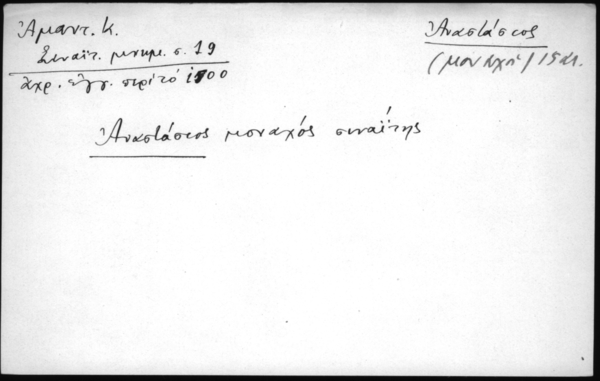 Ἀμαντ. Κ.
Σιναϊτ. μνημ. σ. 19
ἀχρ. ἔγγ. περὶ τό 1500
Ἀναστάσιος
(μοναχός) 15 αἰ.
Ἀναστάσιος μοναχός σιναΐτης